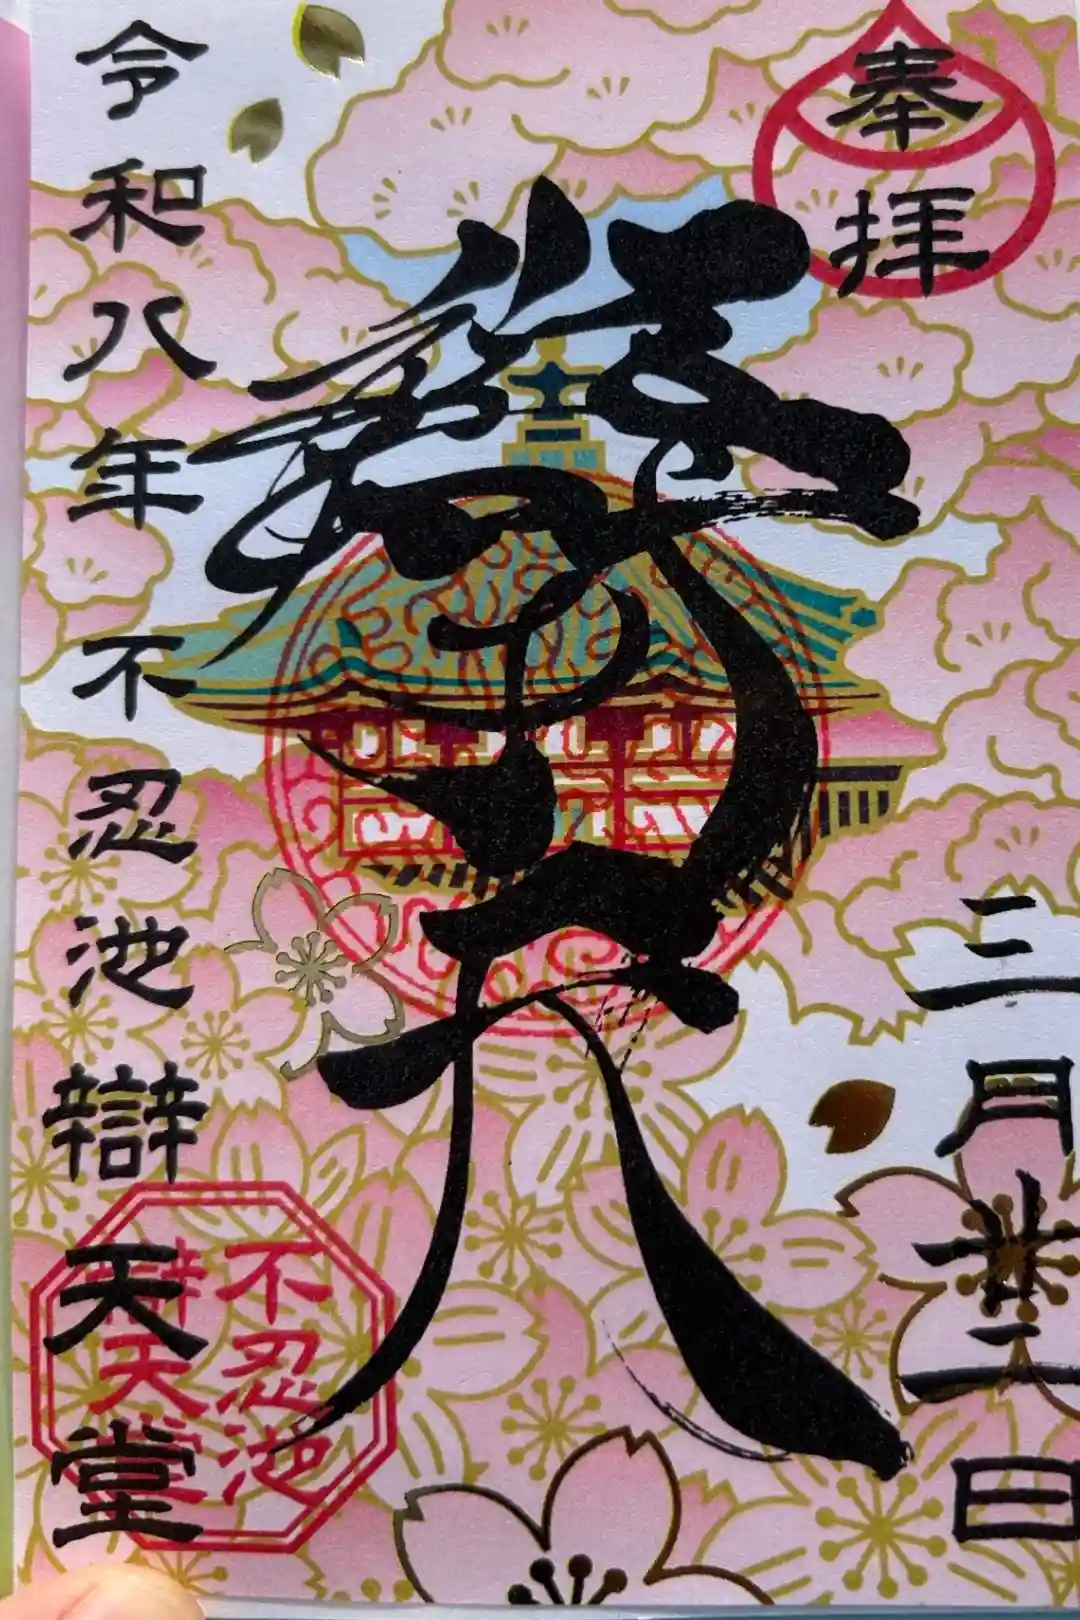 奉拝
三月廿二日
辯才天
令和八年不忍池辯天堂
不忍池
辯天堂